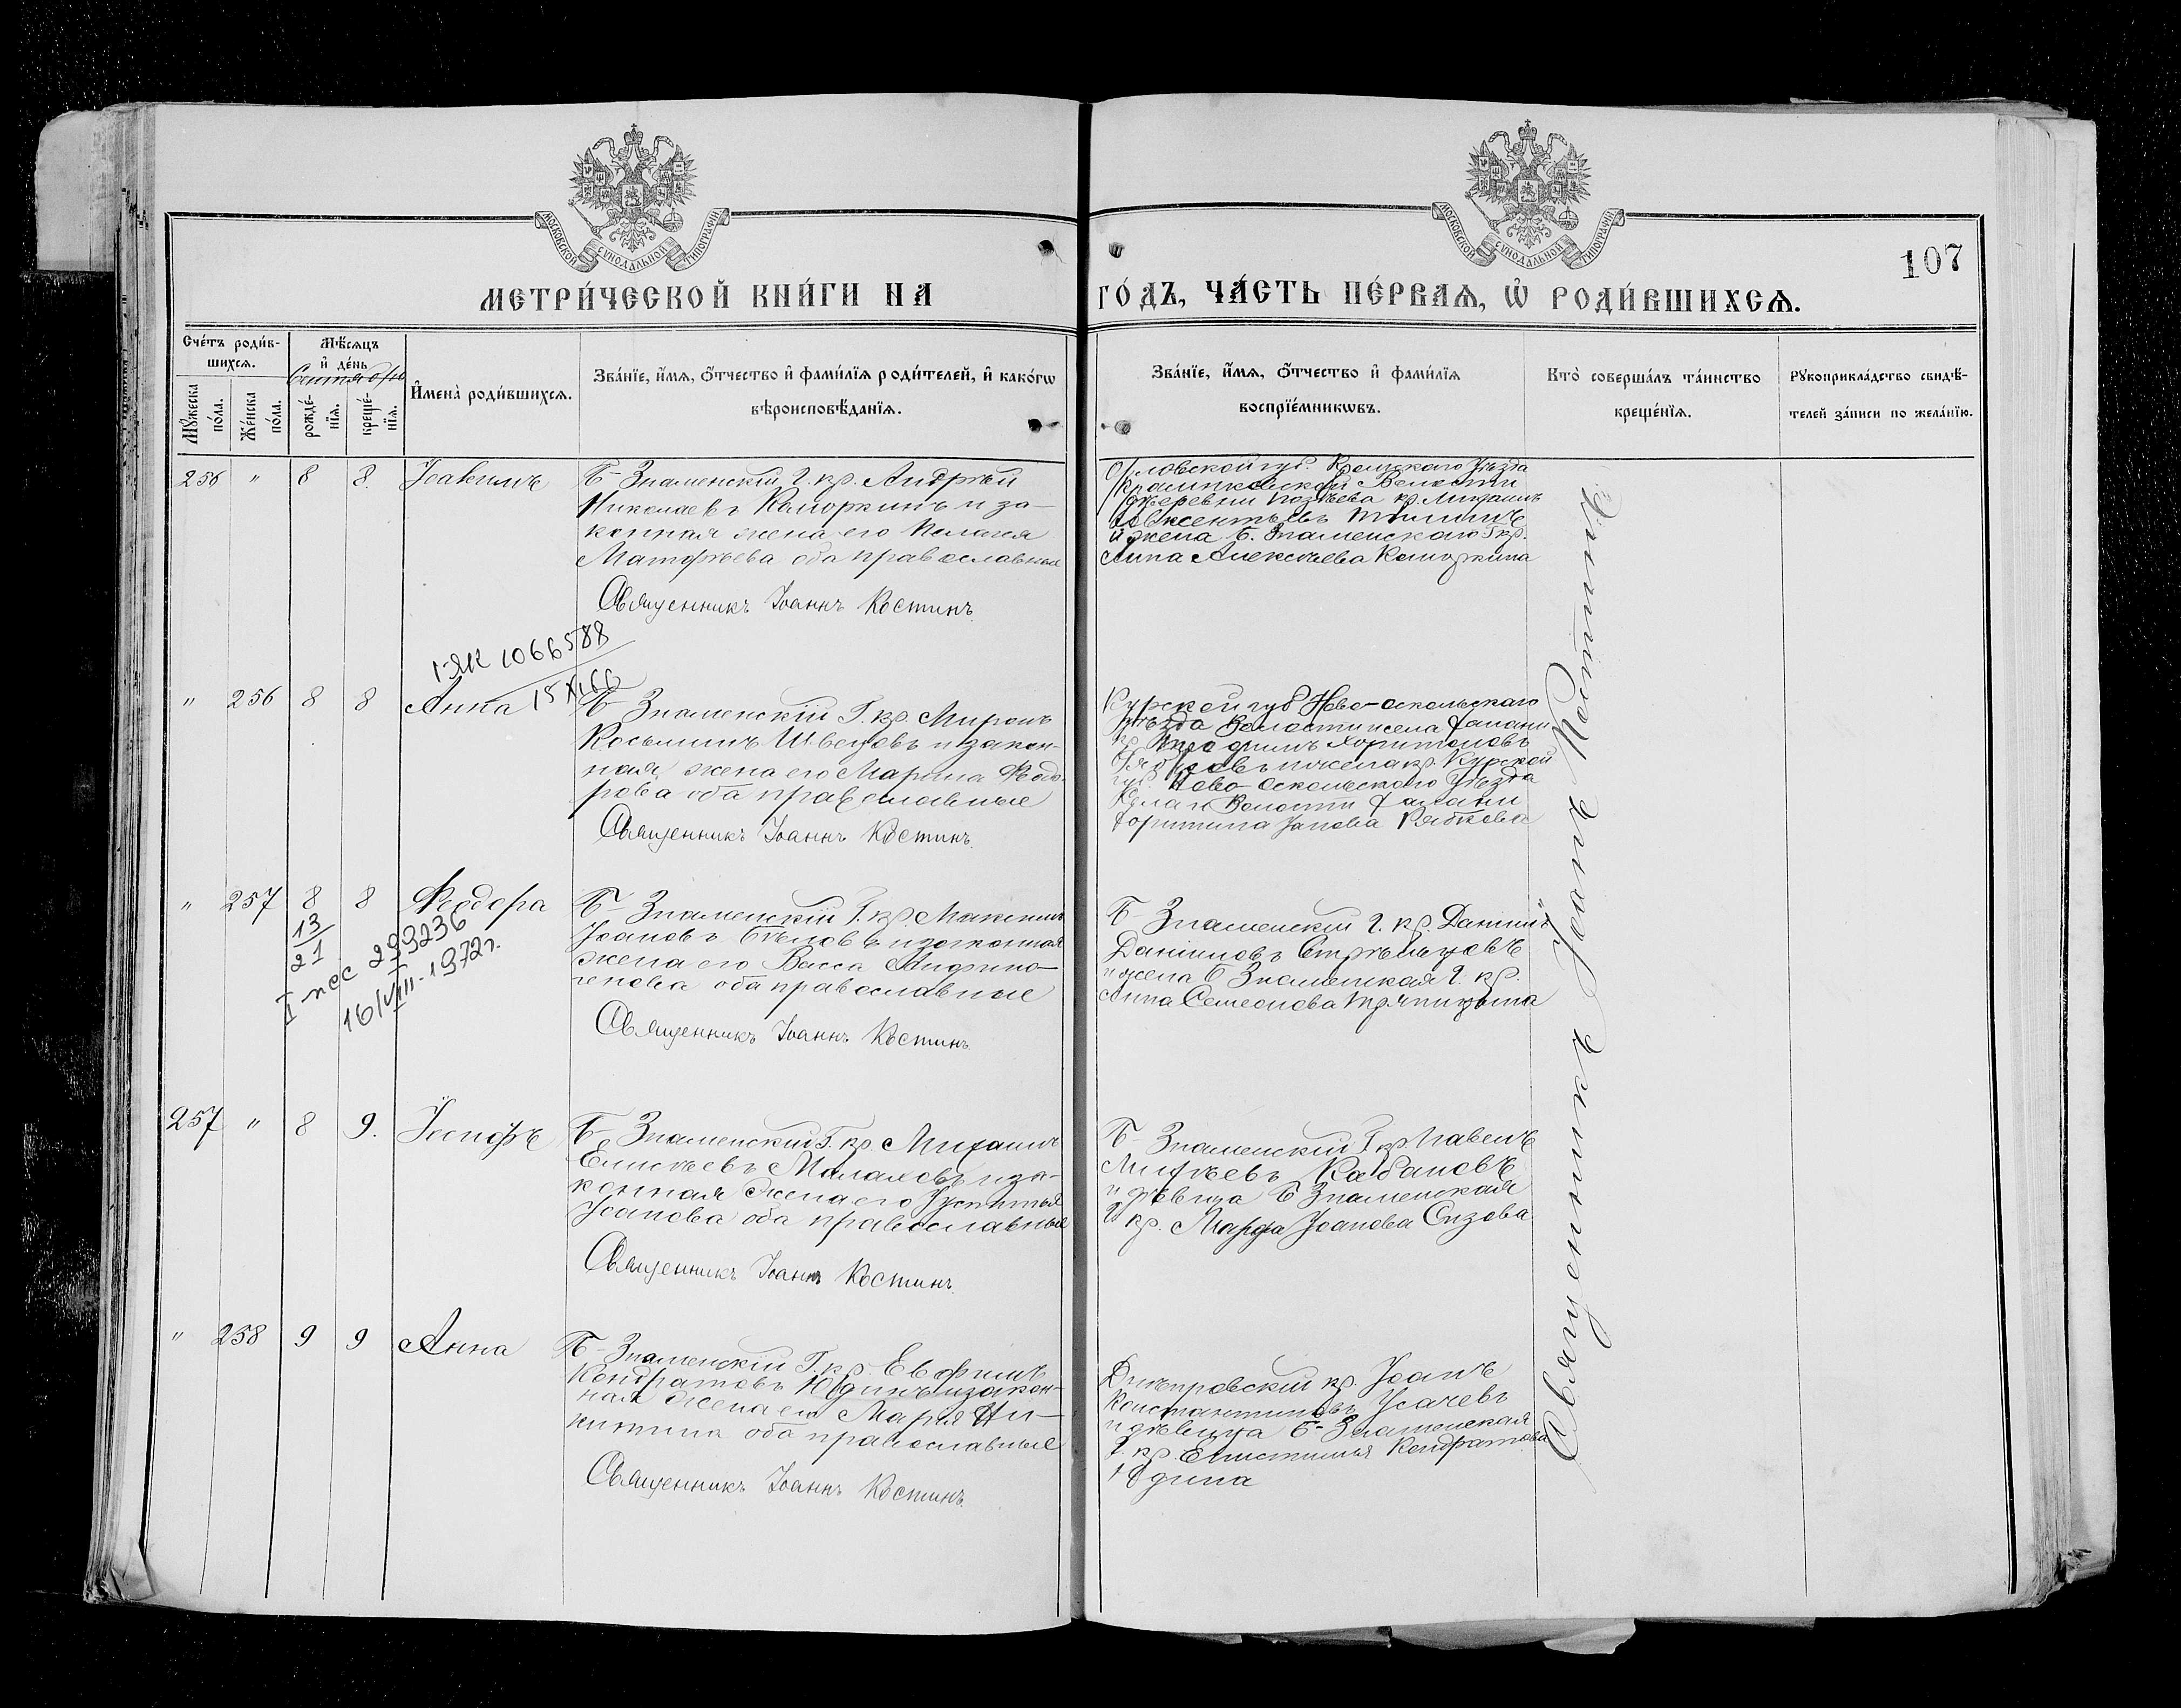 МОСКОВСКОЙ СѴНОДАЛЬНОЙ ТИПОГРАФІИ
МОСКОВСКОЙ СѴНОДАЛЬНОЙ ТИПОГРАФІИ
107
МЕТРИ́ЧЕСКОЙ КНИ́ГИ НА ГО́ДЪ, ЧА́СТЬ ПЕ́РВАѦ, Ѡ҆ РОДИ́ВШИХСѦ.
Сче́тъ роди́в-
шихсѧ.
Мꙋ́жеска по́ла.
Же́нска по́ла.
Мѣ́сѧцъ
и҆ де́нь
Сентября
рожде́-нїѧ.
креще́-нїѧ.
И҆мена̀ роди́вшихсѧ.
Зва́нїе, и҆́мѧ, ѻ҆́тчество и҆ фами́лїѧ роди́телей, и҆ како́гѡ
вѣроисповѣ́данїѧ.
Зва́нїе, и҆́мѧ, ѻ҆́тчество и҆ фами́лїѧ
воспрїе́мникѡвъ.
Кто̀ соверша́лъ та́инство
креще́нїѧ.
Рꙋкоприкла́дство свидѣ́-
телей за́писи по жела́нїю.
256 " 8 8. Іоакимъ
Б-Знаменскій Г. кр. Андрѣй
Николаевъ Каморкинъ и за-
конная жена его Пелагея
Матфѣева оба православные
Священникъ Іоаннъ Костинъ.
Орловской губ. Кромскаго Уѣзда
Волости
деревни кр. Михаилъ
Авксентьевъ
и жена Б. Знаменскаго Г кр.
Анна Алексѣева Каморкина
I-ЯК 1066588
15 XI 66
" 256 8 8 Анна
Б Знаменскій Г. кр. Миронъ
Косьминъ Швецовъ и закон-
ная жена его Марина Ѳедо-
рова оба православные
Священникъ Іоаннъ Костинъ.
Курской губ Ново-Оскольскаго
Уѣзда Волости и села
кр. Трофимъ Харитоновъ
и жена кр. Курской
губ. Ново-Оскольскаго Уѣзда
Волости
Рябкова
" 257 8 8 Ѳеодора
13
21
I псс 299236
16/VIII-1972г.
Б Знаменскій Г. кр. Максимъ
Іоановъ Бѣловъ и законная
жена его Васса Андрона-
 оба православные
Священникъ Іоаннъ Костинъ.
Б-Знаменскій Г. кр. Даніилъ
Даніиловъ Стрѣльцовъ
и жена Б Знаменская Г. кр.
Анна Семеонова Тряпицына
257 " 8 9. Іосифъ
Б-Знаменскій Г. кр. Михаилъ
Елисѣевъ Малаховъ и за-
конная жена его Устинья
Іоанова оба православные
Священникъ Іоаннъ Костинъ.
Б-Знаменскій Г кр Павелъ
Кабановъ
и дѣвица Б Знаменская
Г кр. Марфа Іоанова Сизова
" 258 9 9 Анна
Б-Знаменскій Г. кр. Евфимъ
Кондратовъ Юдинъ и закон-
ная жена его Марія Ни-
китина оба православные
Священникъ Іоаннъ Костинъ.
Днѣпровскій кр. Іоанъ
Константиновъ Усачевъ
и дѣвица Б-Знаменская
Г. кр. Кондратова
Юдина
Священникъ Іоанъ Костинъ